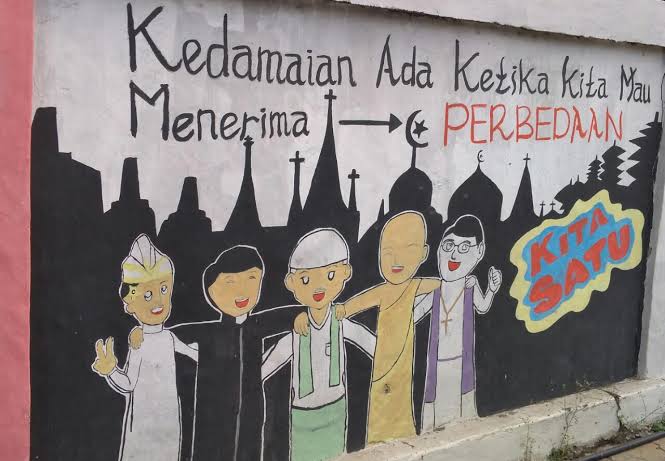 Kedamaian Ada Ketika Kita Mau
Menerima → PERBEDAAN
KITA
SATU